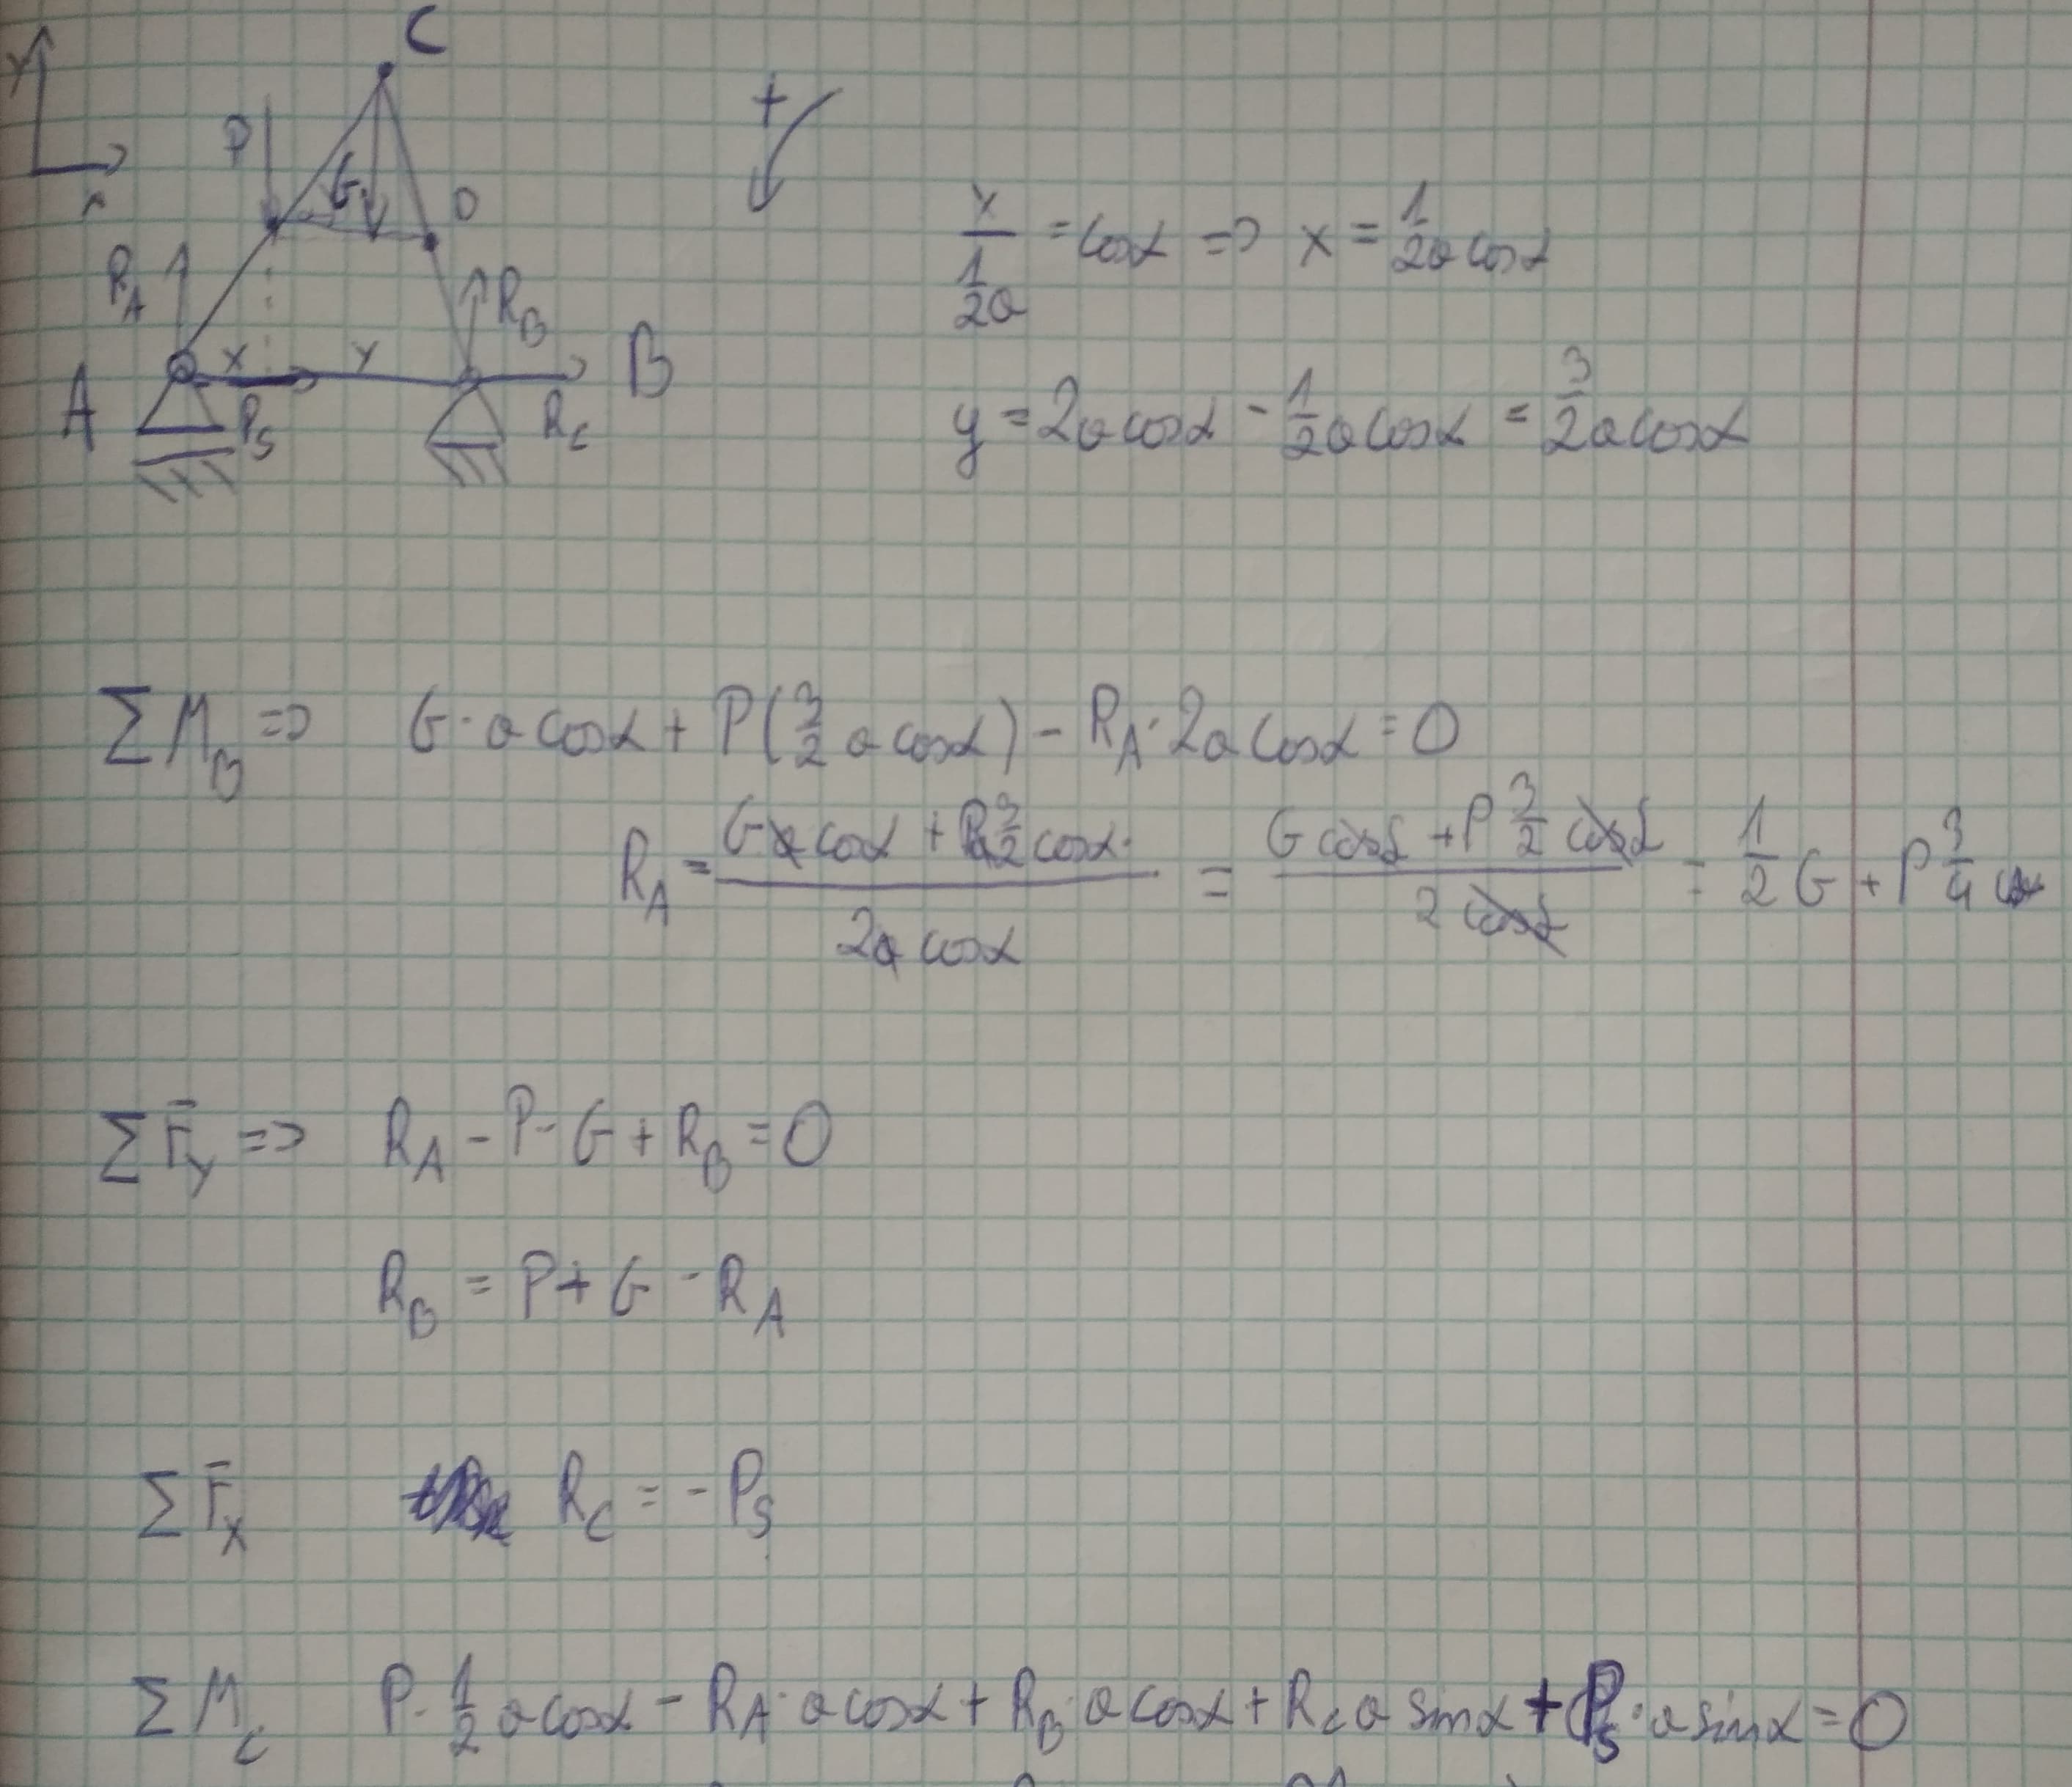 C
y
+
P
G
D
x
x/(1/2a) = cosα => x = 1/2 a cosα
R_A
R_B
A
x
y
B
P_S
R_C
y = 2a cosα - 1/2 a cosα = 3/2 a cosα
ΣM_B => G·a cosα + P(3/2 a cosα) - R_A·2a cosα = 0
R_A = (Ga cosα + Pa 3/2 cosα)/(2a cosα) = (G cosα + P 3/2 cosα)/(2 cosα) = 1/2 G + P 3/4
ΣF̄_y => R_A - P - G + R_B = 0
R_B = P + G - R_A
ΣF̄_x R_C = -P_S
ΣM_C P·1/2 a cosα - R_A·a cosα + R_B·a cosα + R_C a sinα + P_S·a sinα = 0